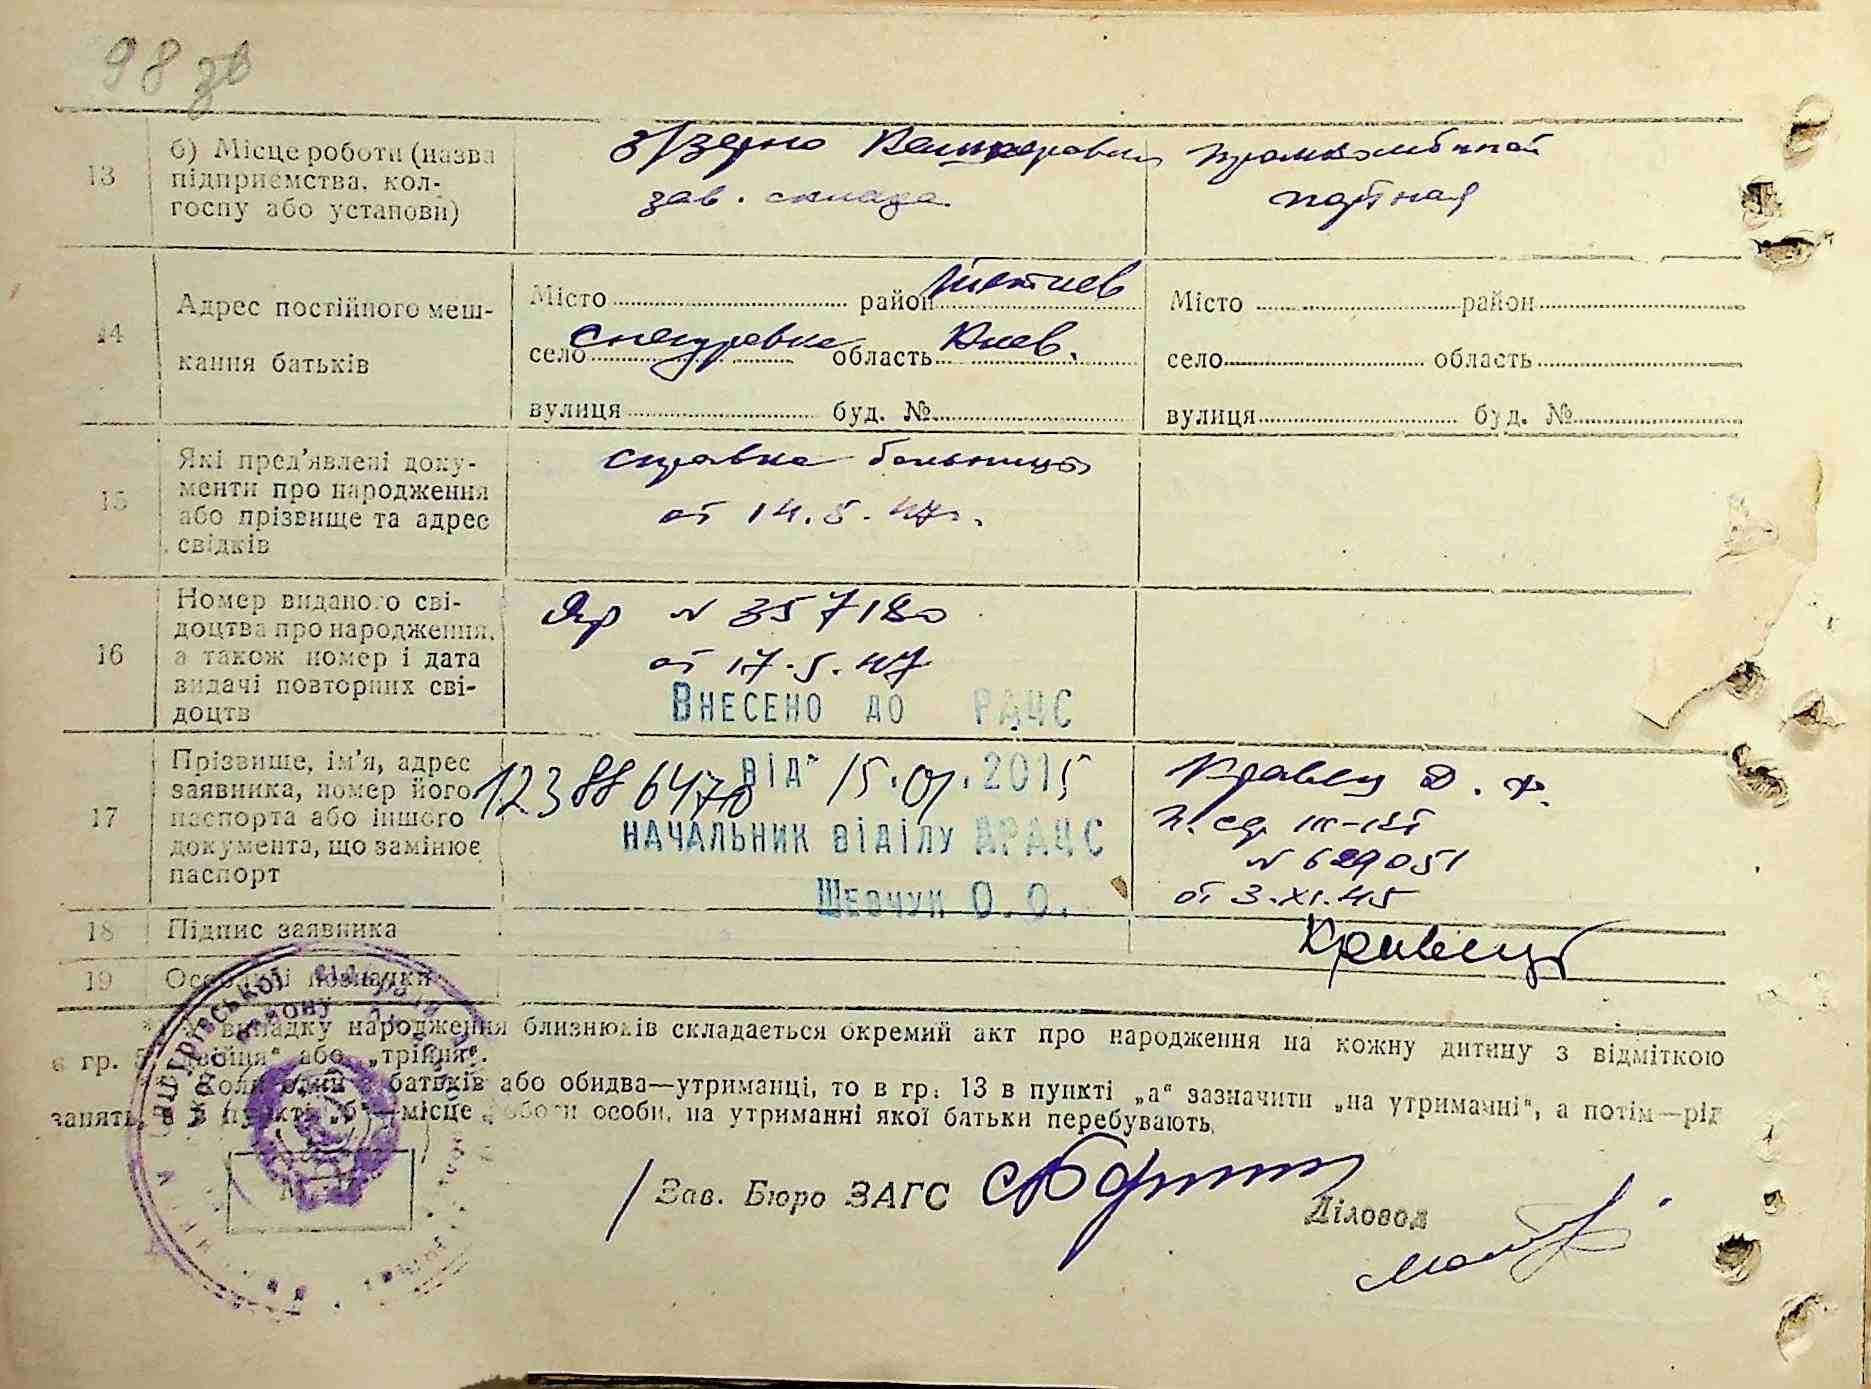 98 зв
13
б) Місце роботи (назва
підприємства, кол-
госпу або установи)
з/зерно
зав. склада
промкомбинат
портная
14
Адрес постійного меш-
кання батьків
Місто район Тетиев
село Снегуровка область Киев.
вулиця буд. №
Місто район
село область
вулиця буд. №
15
Які пред'явлені доку-
менти про народження
або прізвище та адрес
свідків
справка больницы
от 14.5.47г.
16
Номер виданого сві-
доцтва про народження,
а також номер і дата
видачі повторних сві-
доцтв
N 357180
от 17.5.47
Внесено до РАЦС
17
Прізвище, ім'я, адрес
заявника, номер його
паспорта або іншого
документа, що замінює
паспорт
1238864770 від 15.01.2015
начальник відділу ДРАЦС
Шевчук О.О.
Кравец Д. Ф.
N 629051
от 3.XI.45
18
Підпис заявника
Кравец
19
Особливі позначки
* У випадку народження близнюків складається окремий акт про народження на кожну дитину з відміткою
в гр. 5 „двійня“ або „трійня“.
** Коли один з батьків або обидва—утриманці, то в гр. 13 в пункті „а“ зазначити „на утриманні“, а потім—рід
занять, а в пункті „б“—місце роботи особи, на утриманні якої батьки перебувають.
Зав. Бюро ЗАГС
Діловод